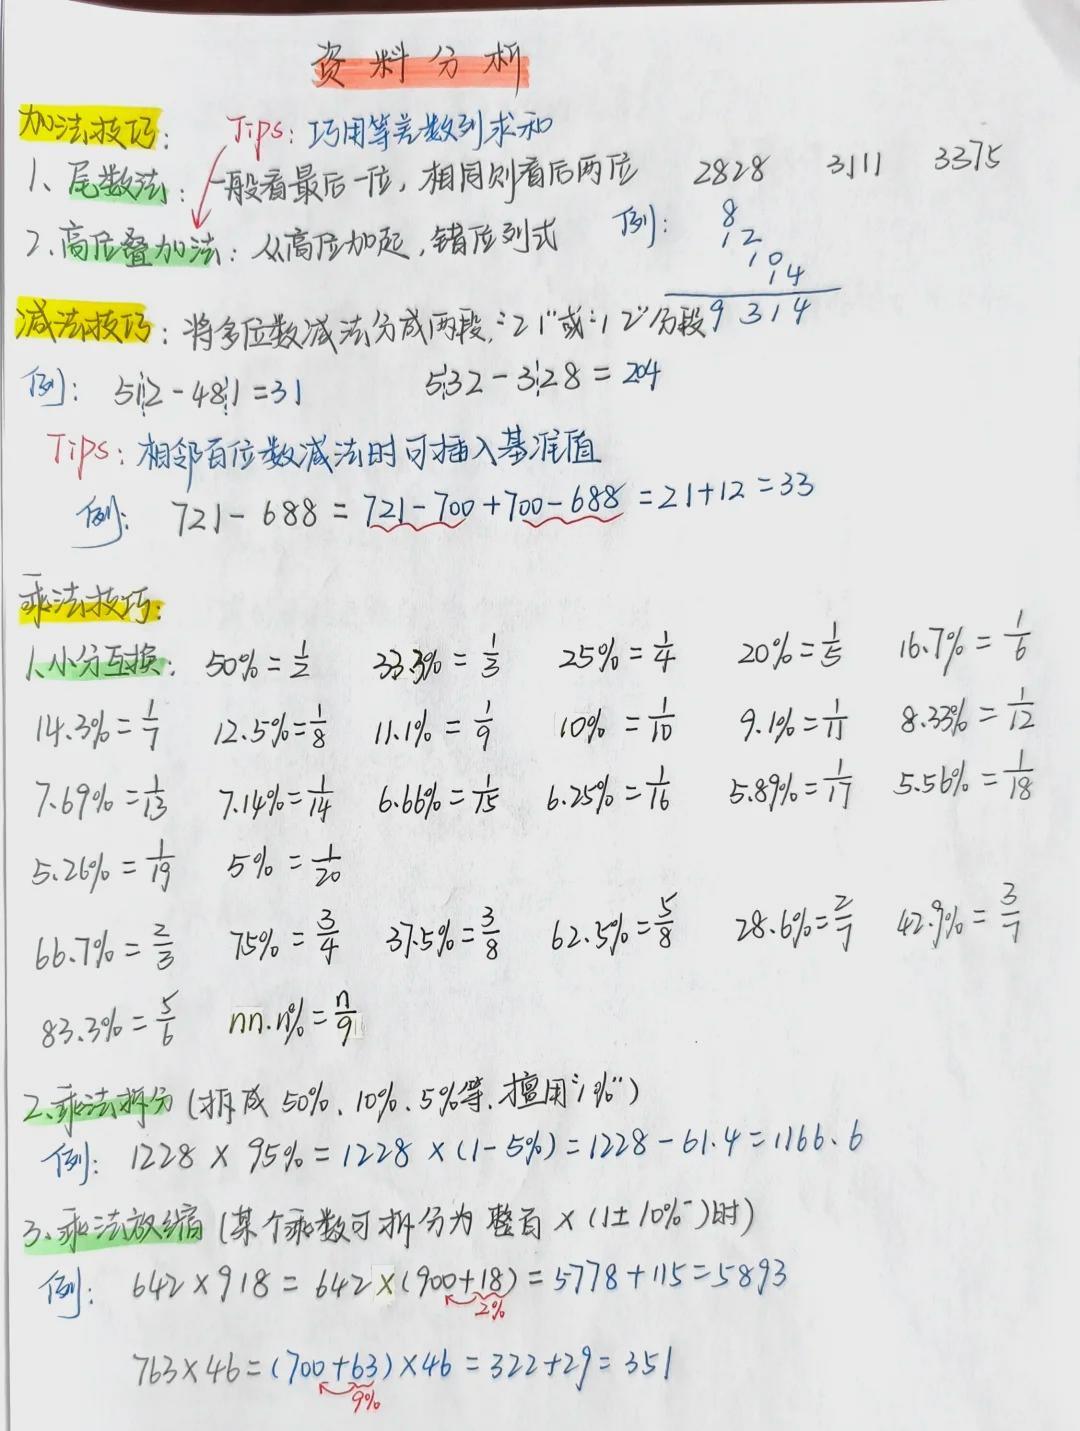 资料分析
加法技巧： Tips：巧用等差数列求和
1、尾数法：一般看最后一位，相同则看后两位 2828 3111 3375
2、高位叠加法：从高位加起，错位列式 例： 8
12
10
14
9314
减法技巧：将多位数减法分成两段，“21”或“12”分段
例： 512-481=31 532-328=204
Tips：相邻百位数减法时可插入基准值
例： 721-688=721-700+700-688=21+12=33
乘法技巧：
1、小分互换： 50%=1/2 33.3%=1/3 25%=1/4 20%=1/5 16.7%=1/6
14.3%=1/7 12.5%=1/8 11.1%=1/9 10%=1/10 9.1%=1/11 8.33%=1/12
7.69%=1/13 7.14%=1/14 6.66%=1/15 6.25%=1/16 5.89%=1/17 5.56%=1/18
5.26%=1/19 5%=1/20
66.7%=2/3 75%=3/4 37.5%=3/8 62.5%=5/8 28.6%=2/7 42.9%=3/7
83.3%=5/6 nn.n%=n/9
2、乘法拆分（拆成50%、10%、5%等，擅用“1%”）
例： 1228×95%=1228×(1-5%)=1228-61.4=1166.6
3、乘法放缩（某个乘数可拆分为整百×(1±10%⁻)时）
例： 642×918=642×(900+18)=5778+115=5893
2%
763×46=(700+63)×46=322+29=351
9%